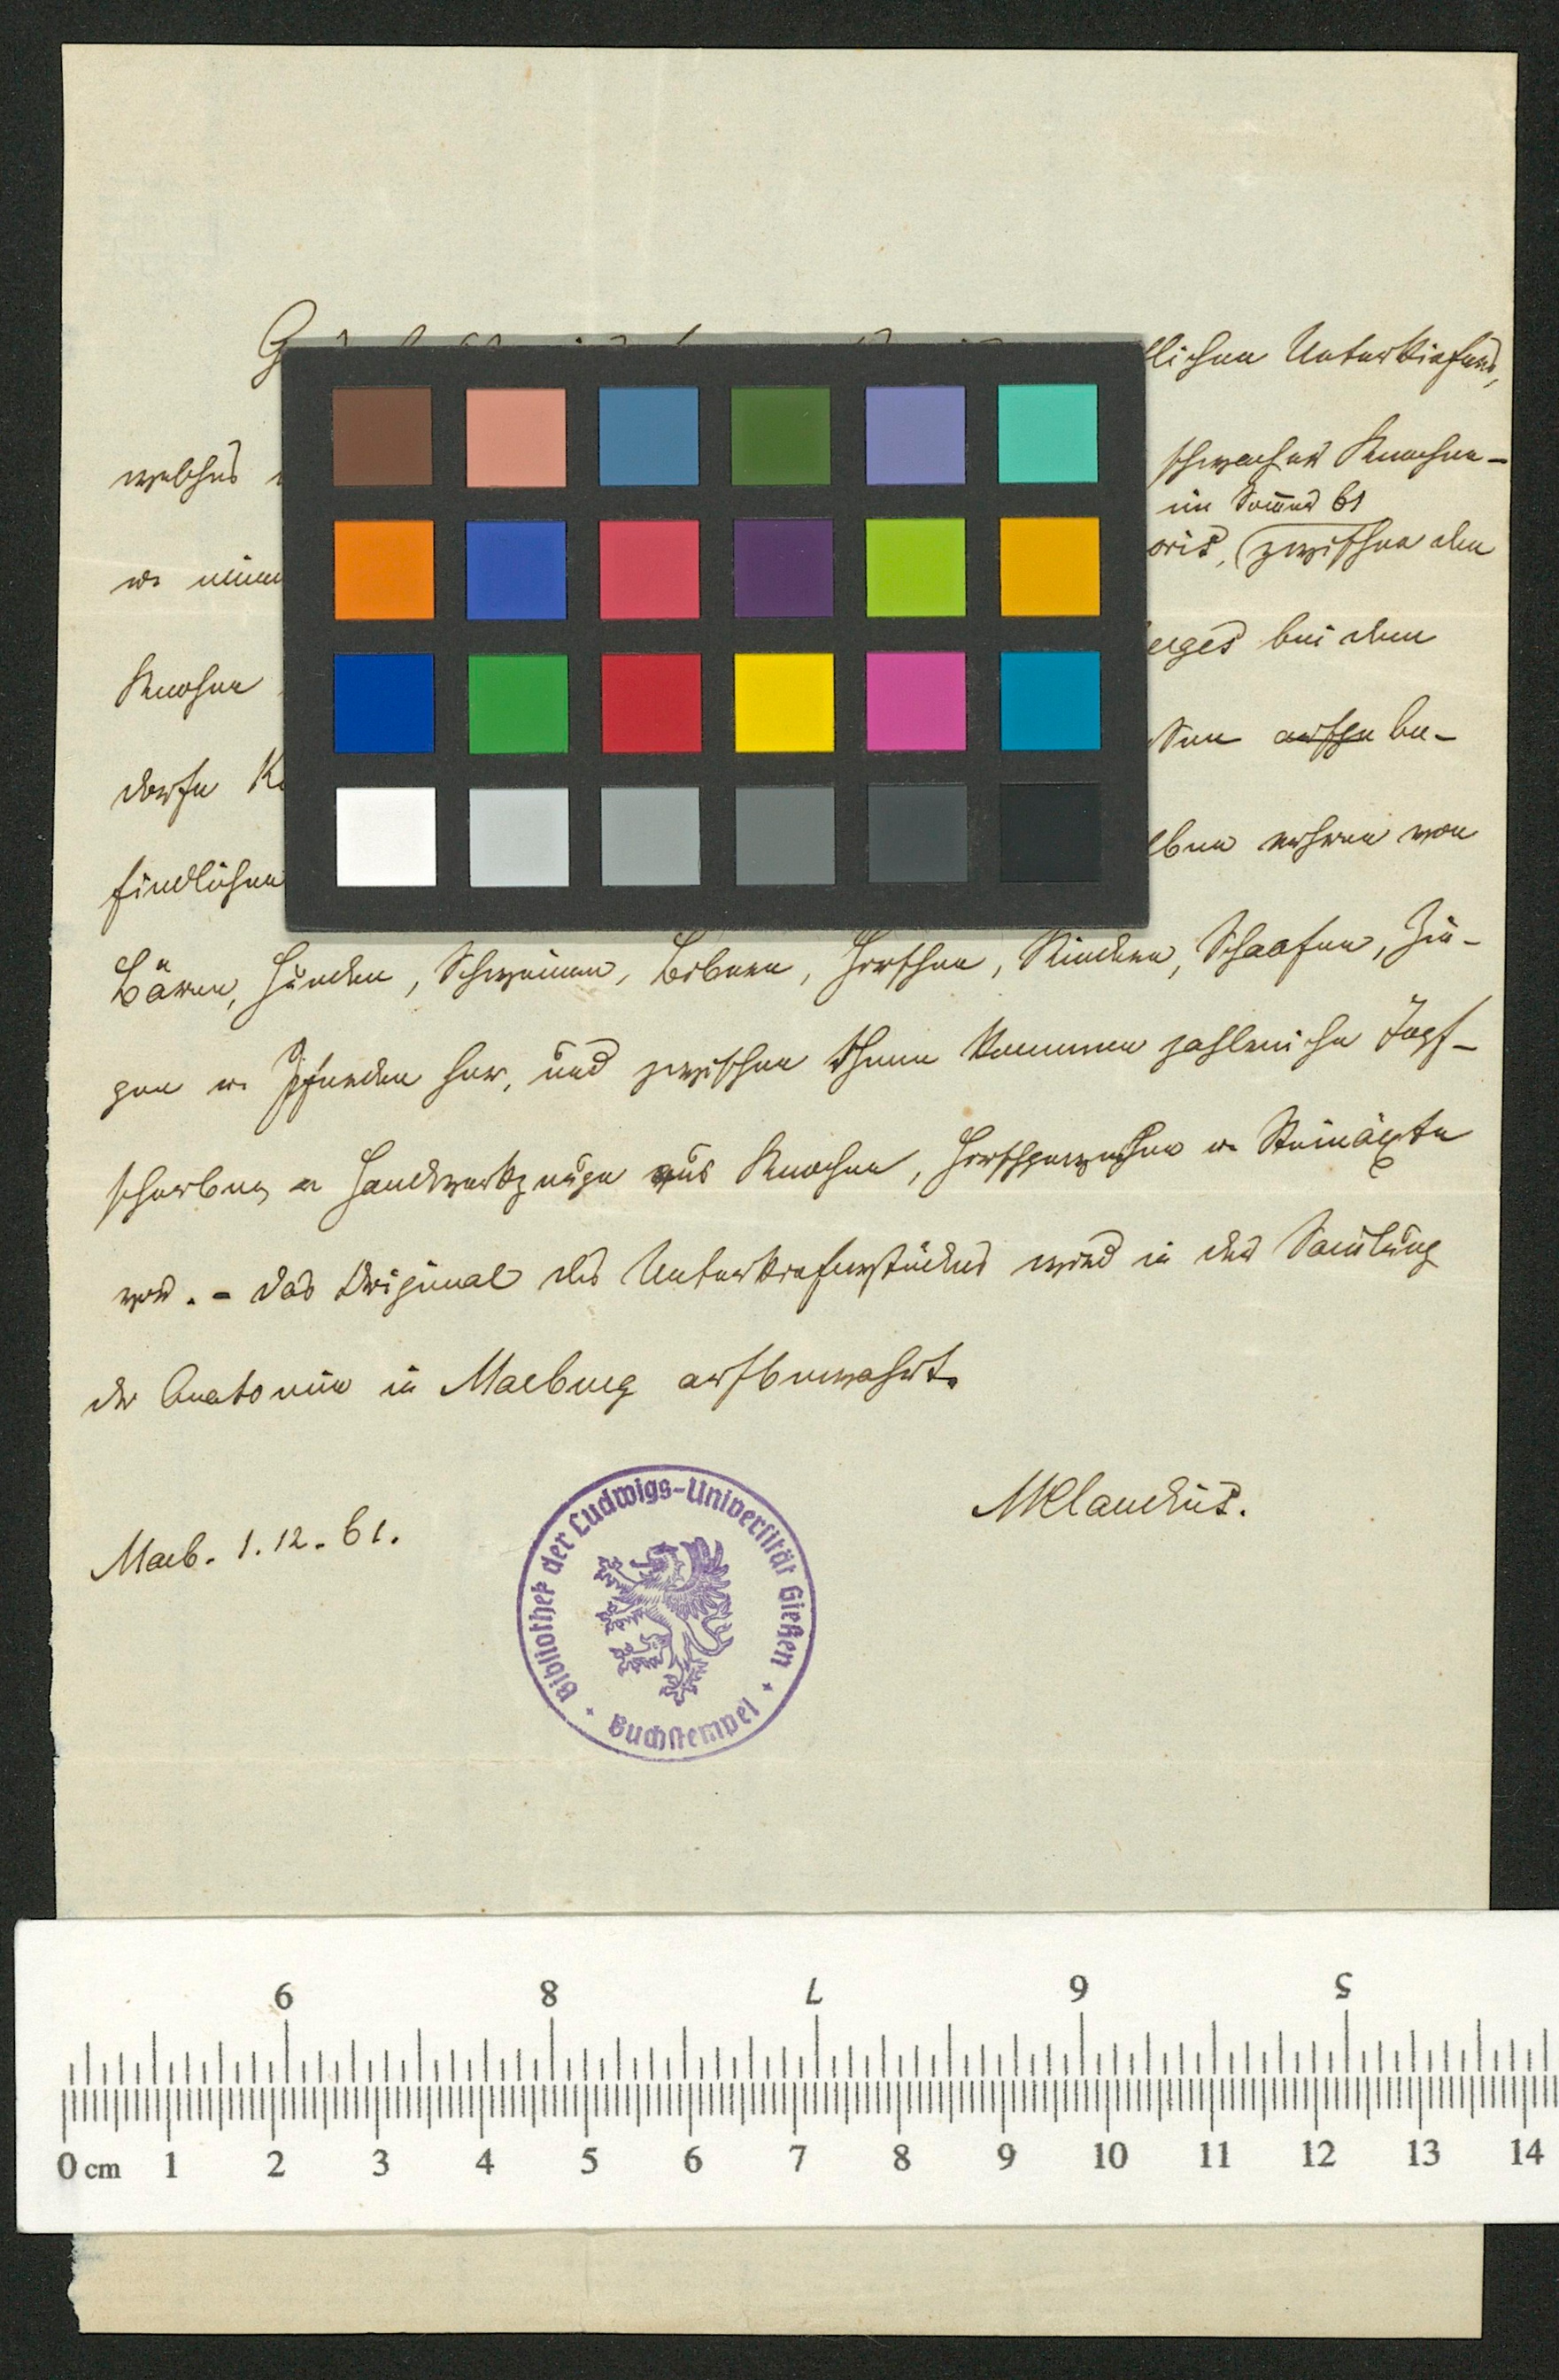 G
lichen Unterkiefers,
welches
schwacher Knochen-
im Som̅er 61
u. einem
oris, (zwischen den
Knochen
erges bei dem
dorfe K
aufge be-
findlichen
lben rühren von
Bären, Hunden, Schweinen, Bibern, Hirschen, Rindern, Schaafen, Zie-
gen u. Pferden her, und zwischen ihnen kommen zahlreiche Topf-
scherben u Handwerkzeuge aus Knochen, Hirschgeweihen u. Steinäxte
vor. - Das Original des Unterkieferstückes wird in der Sam̅lung
der Anatomie in Marburg aufbewahrt.
Marb. 1.12.61.
MClaudius.
Bibliothek der Ludwigs-Universität Gießen
Buchstempel
9 8 7 6 5
0 cm 1 2 3 4 5 6 7 8 9 10 11 12 13 14